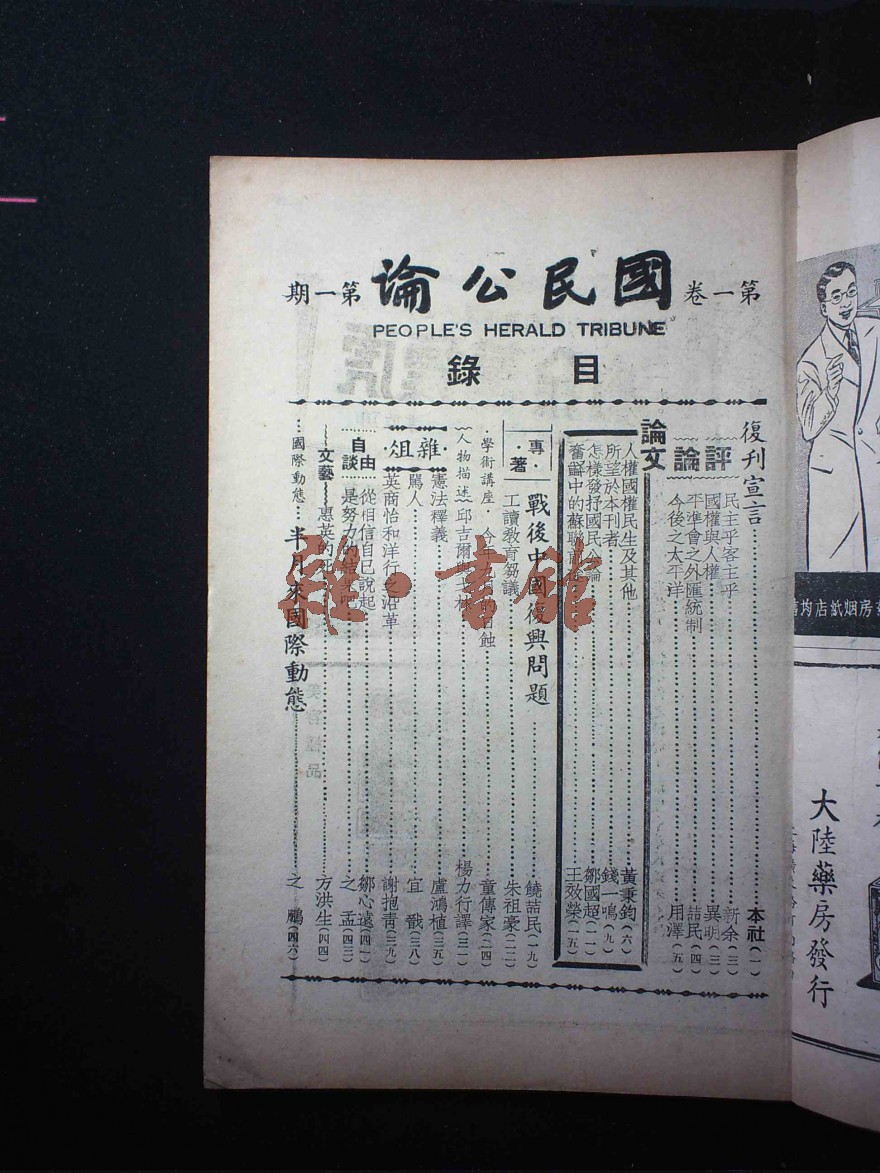 第一卷
國民公論
第一期
PEOPLE'S HERALD TRIBUNE
目錄
復刊宣言……本社(一)
評論
民主乎客主乎……新余(三)
國權與人權……異明(三)
平準會之外匯統制……喆民(四)
今後之太平洋……用澤(五)
論文
人權國權民生及其他……黃秉鈞(六)
所望於本刊者……錢一鳴(九)
怎樣發抒國民公論……鄒國超(一一)
奮鬥中的蘇聯……王效榮(一五)
專著
戰後中國復興問題……饒喆民(一九)
工讀教育芻議……朱祖豪(二二)
·學術講座·今年……日蝕……童傳家(二四)
人物描述 邱吉爾……楊力行譯(三一)
·雜俎·
憲法釋義……盧鴻植(三五)
罵人……宜戩(三八)
英商怡和洋行之沿革……謝抱青(三九)
自由談
從相信自己說起……鄒心遠(四一)
是努力的……吧……之孟(四三)
文藝 惠英的死……方洪生(四四)
…國際動態…半月來國際動態……之鵬(四六)
雜·書館
大陸藥房發行
房烟紙店均